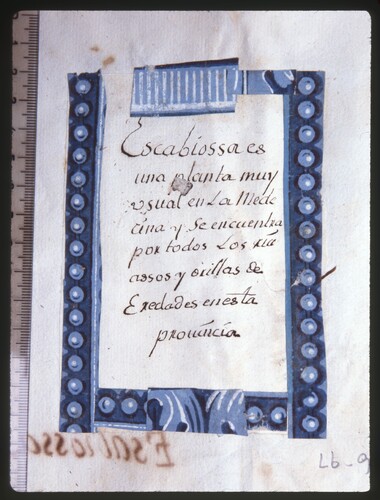 Escabiossa es
una planta muy
vsual en La Mede
cina y Se encuentra
por todos Los rib
assos y orillas de
Eredades en esta
provincia
Escabiossa
Lb-9